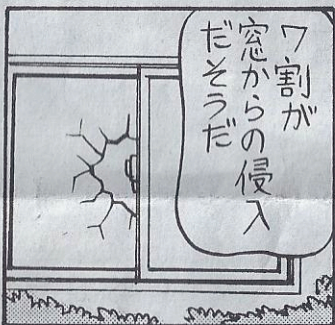 7割が
窓からの侵入
だそうだ